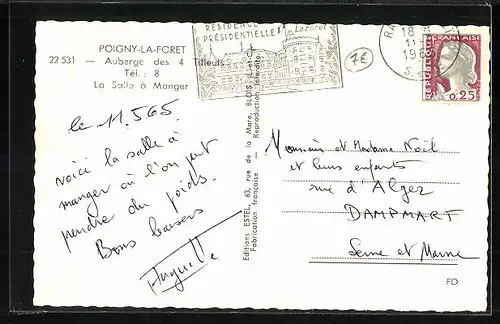 POIGNY-LA-FORET
22 531 — Auberge des 4 Tilleuls
Tél. : 8
La Salle à Manger
RÉSIDENCE
PRÉSIDENTIELLE
La Forêt
7€
18
11
196
RÉPUBLIQUE FRANÇAISE
0,25
le 11.5.65.
Voici la salle à
manger où l'on peut
prendre du poids.
Bons baisers
Huguette
Editions ESTEL, 63, rue de la Mare, BLOIS (L.-et-C.)
Fabrication française — Reproduction interdite
Monsieur et Madame Noël
et leurs enfants
rue d'Alger
DAMPMART
Seine et Marne
FD